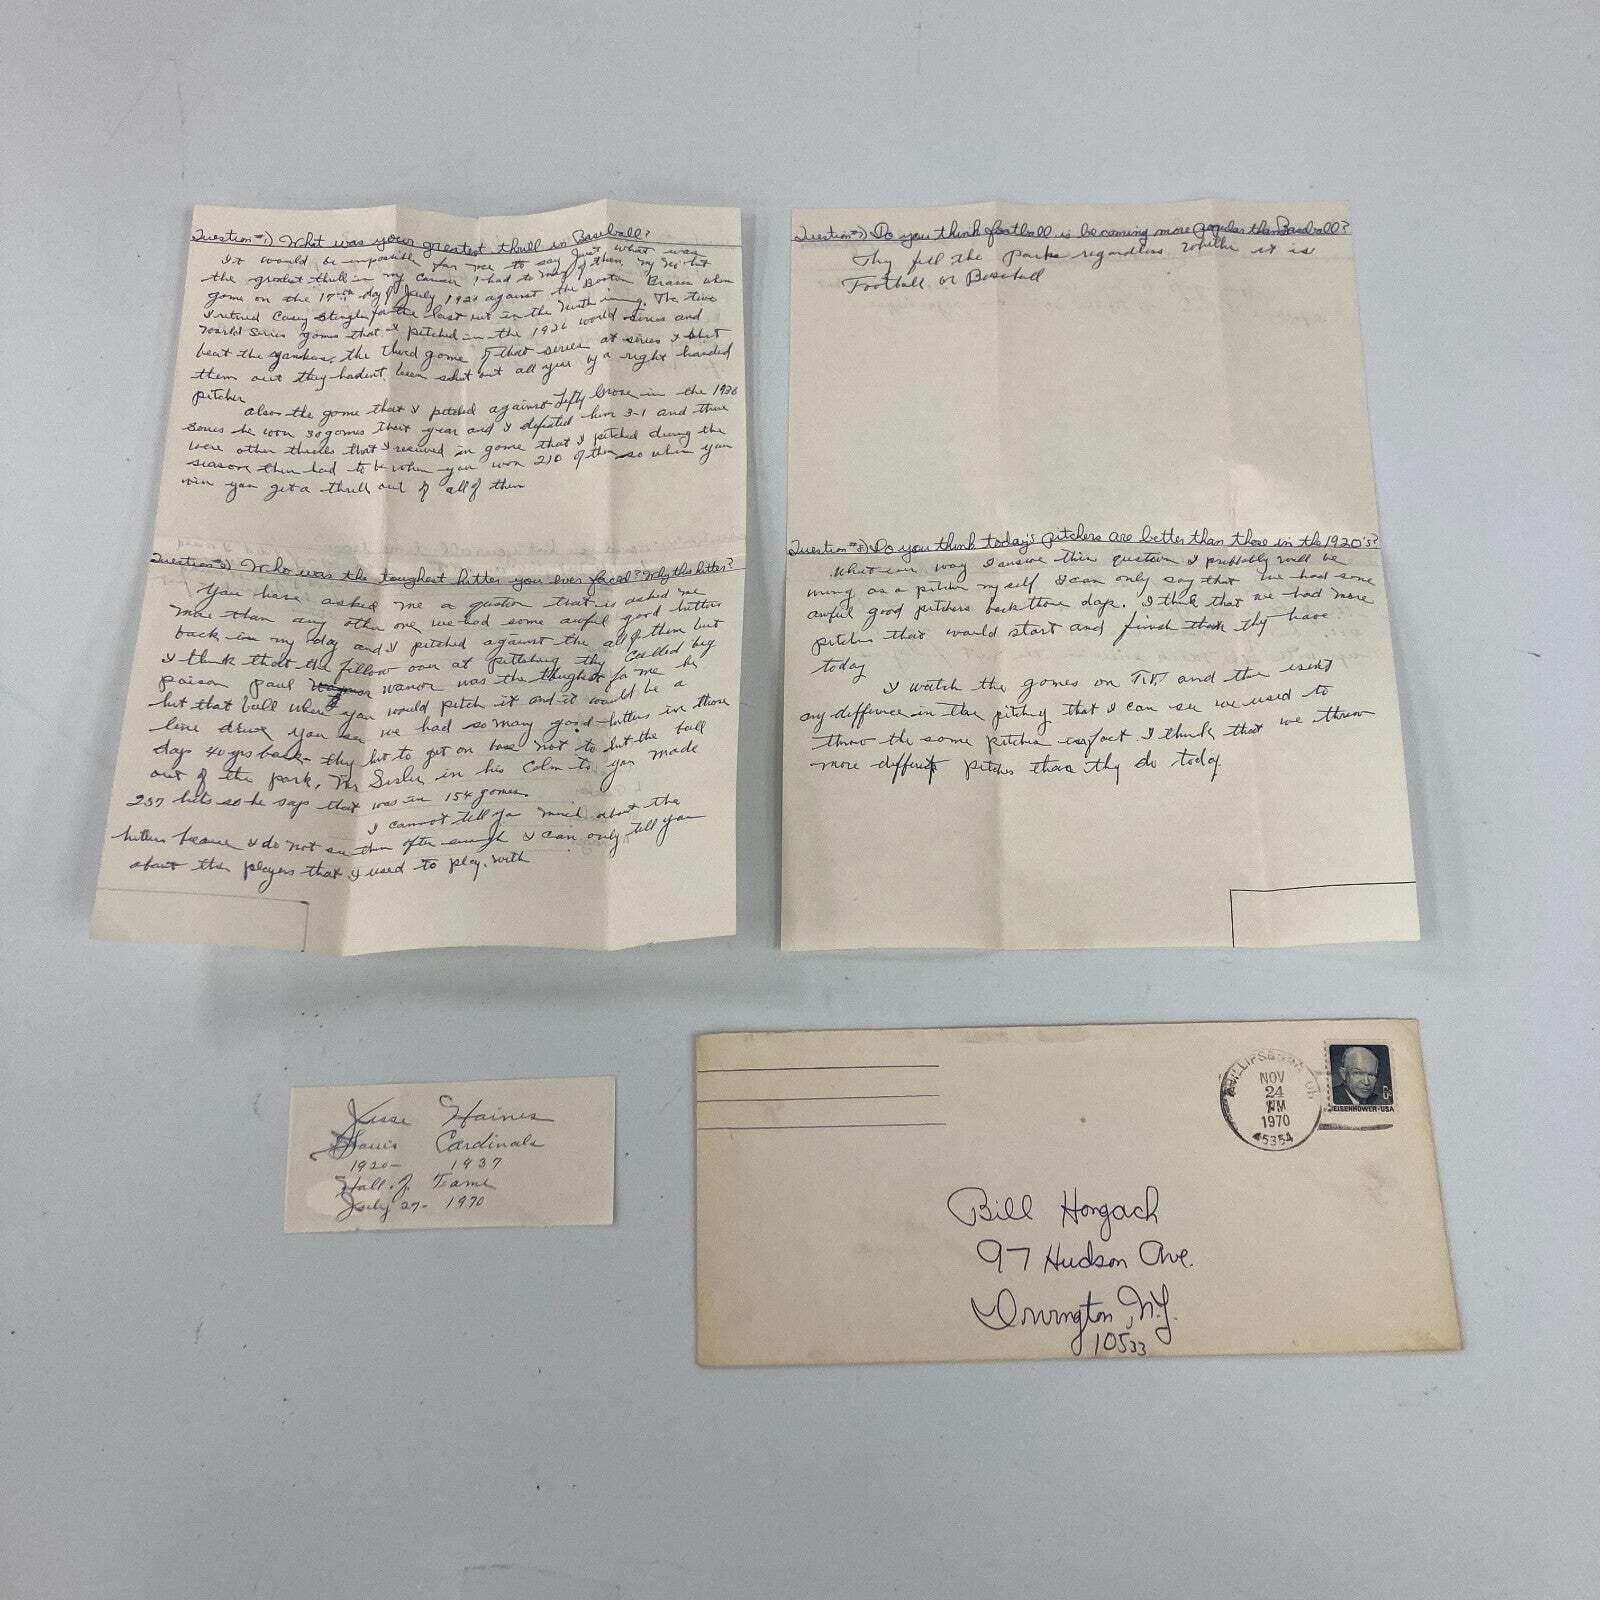 Question #1) What was your greatest thrill in Baseball?
It would be impossible for me to say Just what was
the greatest thrill in my Career I had to many of them my no hit
game on the 17th day of July 1924 against the Boston Braves when
I retired Casey Stengle for the last out in the ninth inning. The two
World Series games that I pitched in the 1926 world series and
beat the Yankees, the third game of that series I shut
them out they hadent been shut out all year by a right handed
pitcher
Also the game that I pitched against Lefty Grove in the 1930
Series he won 30 games that year and I defeated him 3-1 and there
were other thrills that I received in game that I pitched during the
season there had to be when you won 210 of them so when you
win you get a thrill out of all of them
Who was the toughest hitter you ever faced? Why this hitter?
You have asked me a question that is asked me
more than any other one we had some awful good hitters
back in my day and I pitched against the all of them but
I think that the fellow over at pittsburg thy called big
poison paul wanor was the toughest for me he
hit that ball where you would pitch it and it would be a
line drive you see we had so many good hitters in those
days 40 yrs back thy hit to get on base not to hit the ball
out of the park, Mr Sisler in his
257 hits so he says that was in 154 games.
I cannot tell you much about the
hitters because I do not see them often enough I can only tell you
about the players that I used to play with
Question #7) Do you think football is becoming more popular than Baseball?
Thy fill the Parks regardless Whether it is
Football or Baseball
Question #8) Do you think today's pitchers are better than those in the 1920's?
What ever way I answer this question I probably will be
wrong as a pitcher my self I can only say that we had some
awful good pitchers back those days. I think that we had more
pitchers that would start and finish than thy have
today
I watch the games on T.V. and there isent
any difference in the pitching that I can see we used to
throw the same pitches in fact I think that we threw
more different pitches than thy do today.
Jesse Haines
St Louis Cardinals
1920- 1937
Hall of Fame
July 27- 1970
PHILLIPSBURG, OH
NOV
24
PM
1970
45354
6¢
EISENHOWER·USA
Bill Horgach
97 Hudson Ave.
Irvington, N.Y.
10533